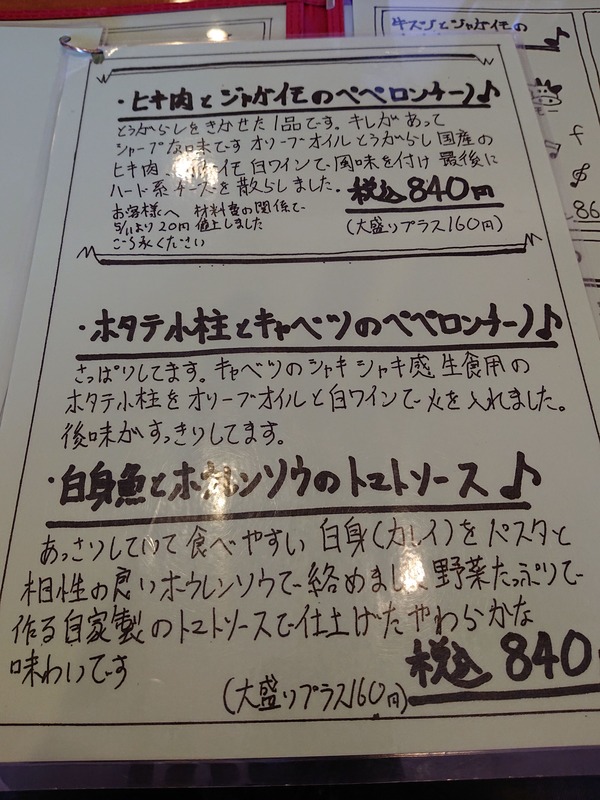 牛スジとジャガイモの
・ヒキ肉とジャガイモのペペロンチーノ♪
とうがらしをきかせた1品です。キレがあって
シャープな味です オリーブオイル とうがらし 国産の
ヒキ肉、 イモ 白ワインで風味を付け 最後に
ハード系チーズを散らしました。
税込840円
お客様へ 材料費の関係で
5/1より20円値上しました
ごう承ください
(大盛りプラス160円)
・ホタテ小柱とキャベツのペペロンチーノ♪
さっぱりしてます。キャベツのシャキシャキ感 生食用の
ホタテ小柱をオリーブオイルと白ワインで火を入れました。
後味がすっきりしてます。
・白身魚とホウレンソウのトマトソース♪
あっさりしていて食べやすい 白身(カレイ)をパスタと
相性の良いホウレンソウで絡めました 野菜たっぷりで
作る自家製のトマトソースで仕上げたやわらかな
味わいです
税込840
(大盛りプラス160円)